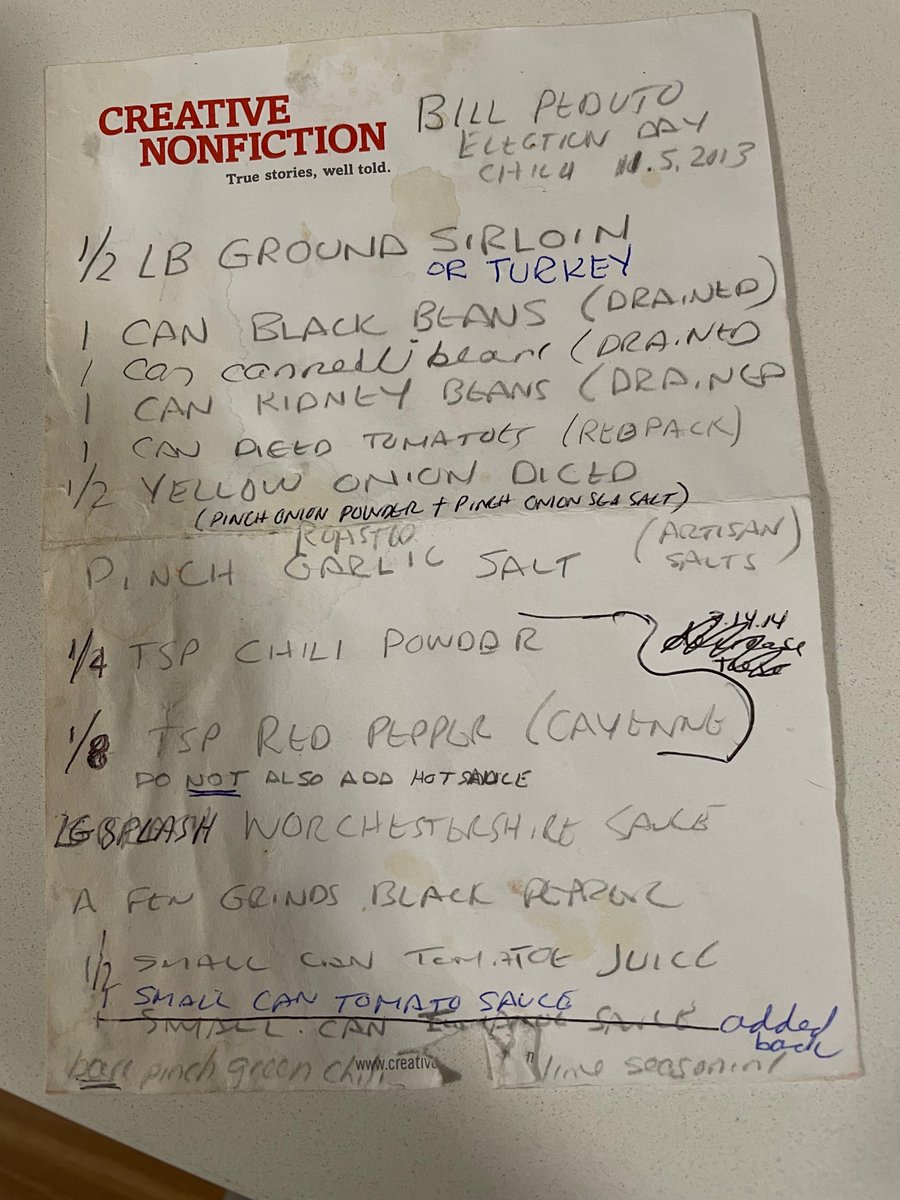 CREATIVE
NONFICTION
True stories, well told.
BILL PEDUTO
ELECTION DAY
CHILI 11.5.2013
1/2 LB GROUND SIRLOIN
OR TURKEY
1 CAN BLACK BEANS (DRAINED)
1 Can cannelli beans (DRAINED
1 CAN KIDNEY BEANS (DRAINED
1 CAN DICED TOMATOES (REDPACK)
1/2 YELLOW ONION DICED
(PINCH ONION POWDER + PINCH ONION SEA SALT)
ROASTED
PINCH GARLIC SALT (ARTISAN)
SALTS
1/4 TSP CHILI POWDER
14.14
these
1/8 TSP RED PEPPER (CAYENNE)
DO NOT ALSO ADD HOT SAUCE
LG SPLASH WORCHESTERSHIRE SAUCE
A FEW GRINDS BLACK PEPPER
1/2 SMALL CAN TOMATOE JUICE
1 SMALL CAN TOMATO SAUCE
1 SMALL CAN SAUCE added
back
bare pinch green chili lime seasoning
www.creative